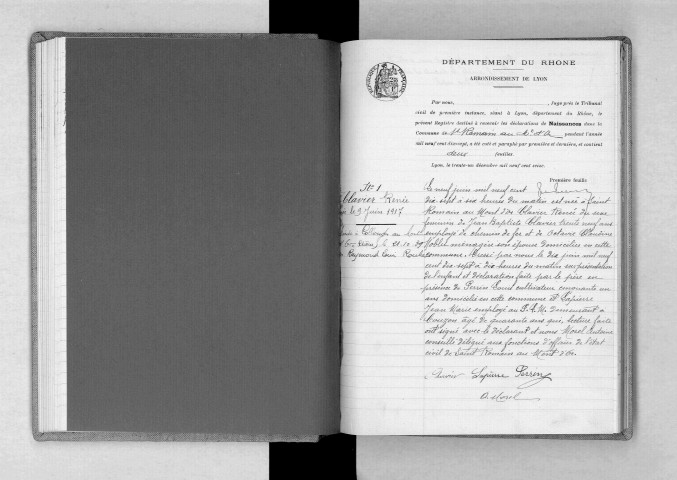 DÉPARTEMENT DU RHONE
ARRONDISSEMENT DE LYON
Par nous, , Juge près le Tribunal
civil de première instance, séant à Lyon, département du Rhône, le
présent Registre destiné à recevoir les déclarations de Naissances dans la
Commune de St Romain au Mt d'Or pendant l'année
mil neuf cent dix-sept, a été coté et paraphé par première et dernière, et contient
deux feuilles
Lyon, le trente-un décembre mil neuf cent seize.
Première feuille
No 1
Clavier Renée
le 9 Juin 1917
Raymond Louis
Le neuf juin mil neuf cent
dix sept à six heures du matin est née à Saint
Romain au Mont d'Or Clavier Renée du sexe
féminin de Jean Baptiste Clavier trente neuf ans
employé de chemin de fer et de Octavie Claudine
Joblet ménagère son épouse domiciliés en cette
commune. Dressé par nous le dix juin mil neuf
cent dix sept à dix heures du matin sur présentation
de l'enfant et déclaration faite par le père en
présence de Perrin Louis cultivateur cinquante un
ans domicilié en cette commune et Lapierre
Jean Marie employé au P.L.M. demeurant à
Couzon âgé de quarante ans qui, lecture faite
ont signé avec le déclarant et nous Morel Antoine
conseiller délégué aux fonctions d'officier de l'état
civil de Saint Romain au Mont d'Or.
Clavier Lapierre Perrin
A. Morel